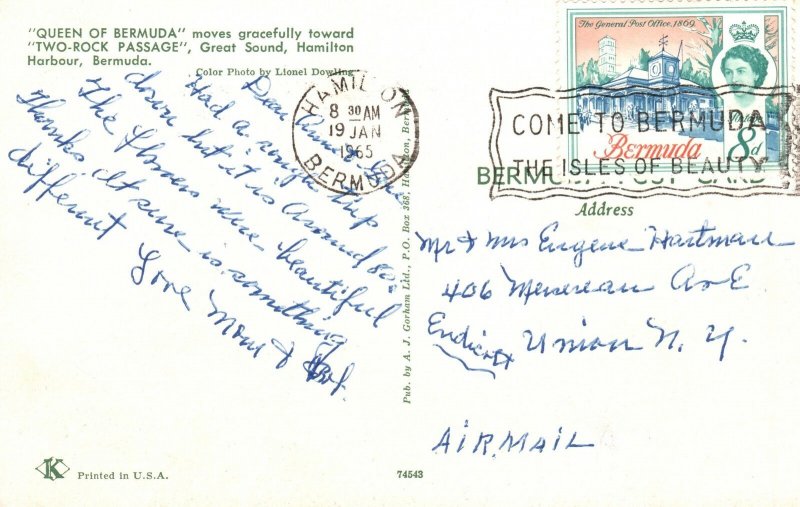 "QUEEN OF BERMUDA" moves gracefully toward
"TWO-ROCK PASSAGE", Great Sound, Hamilton
Harbour, Bermuda.
Color Photo by Lionel Dowling
Dear
Had a rough trip
down but it is around 80°
The flowers were beautiful
Thanks. It sure is something
different Love Mom &
Pub. by A. J. Gorham Ltd., P.O. Box 368, Hamilton, Ber
HAMILTON
8 30 AM
19 JAN
1965
BERMUDA
The General Post Office, 1869.
Bermuda
8d
COME TO BERMUDA
THE ISLES OF BEAUTY
Address
Mr & Mrs Eugene Hartman
406 Ave
Endicott Union N.Y.
AIR MAIL
K
Printed in U.S.A.
74543